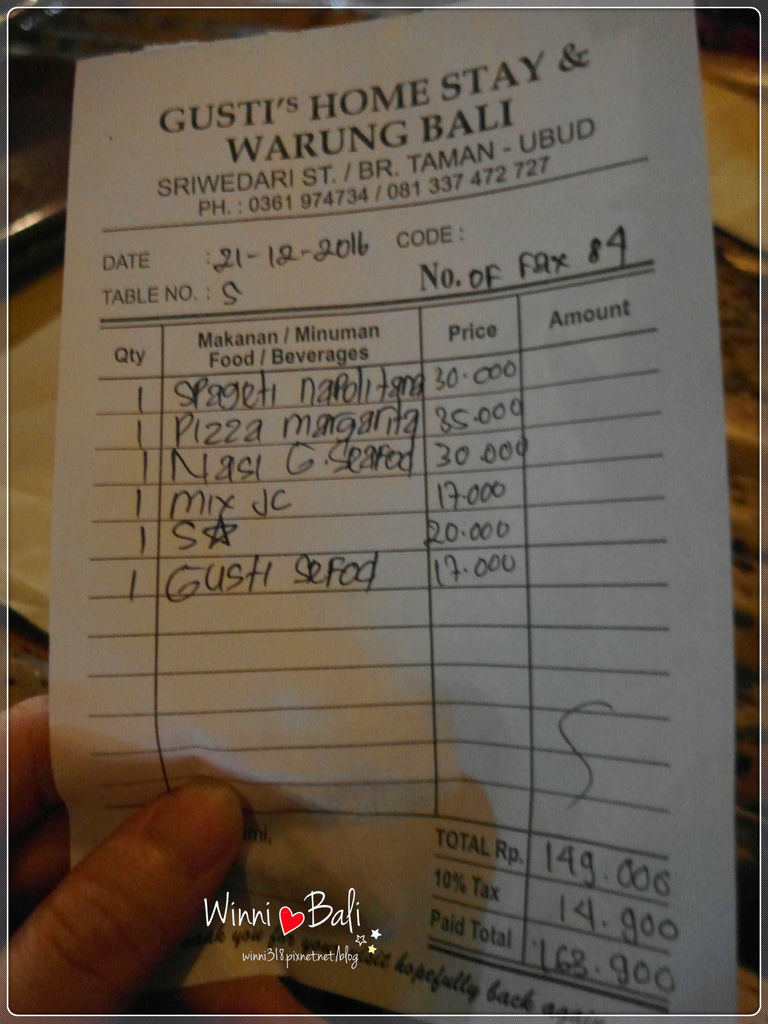 GUSTI's HOME STAY &
WARUNG BALI
SRIWEDARI ST. / BR. TAMAN - UBUD
PH. : 0361 974734 / 081 337 472 727
DATE : 21-12-2016 CODE :
TABLE NO. : 5 No. OF Fax 84
Qty Makanan / Minuman Food / Beverages Price Amount
1 Spageti napolitana 30.000
1 Pizza margarita 35.000
1 Nasi G. Seafod 30.000
1 Mix JC 17.000
1 S☆ 20.000
1 Gusti sefod 17.000
TOTAL Rp. 149.000
10% Tax 14.900
Paid Total 163.900
you for your hopefully back again
Winni ♥ Bali
winni318.pixnetnet/blog